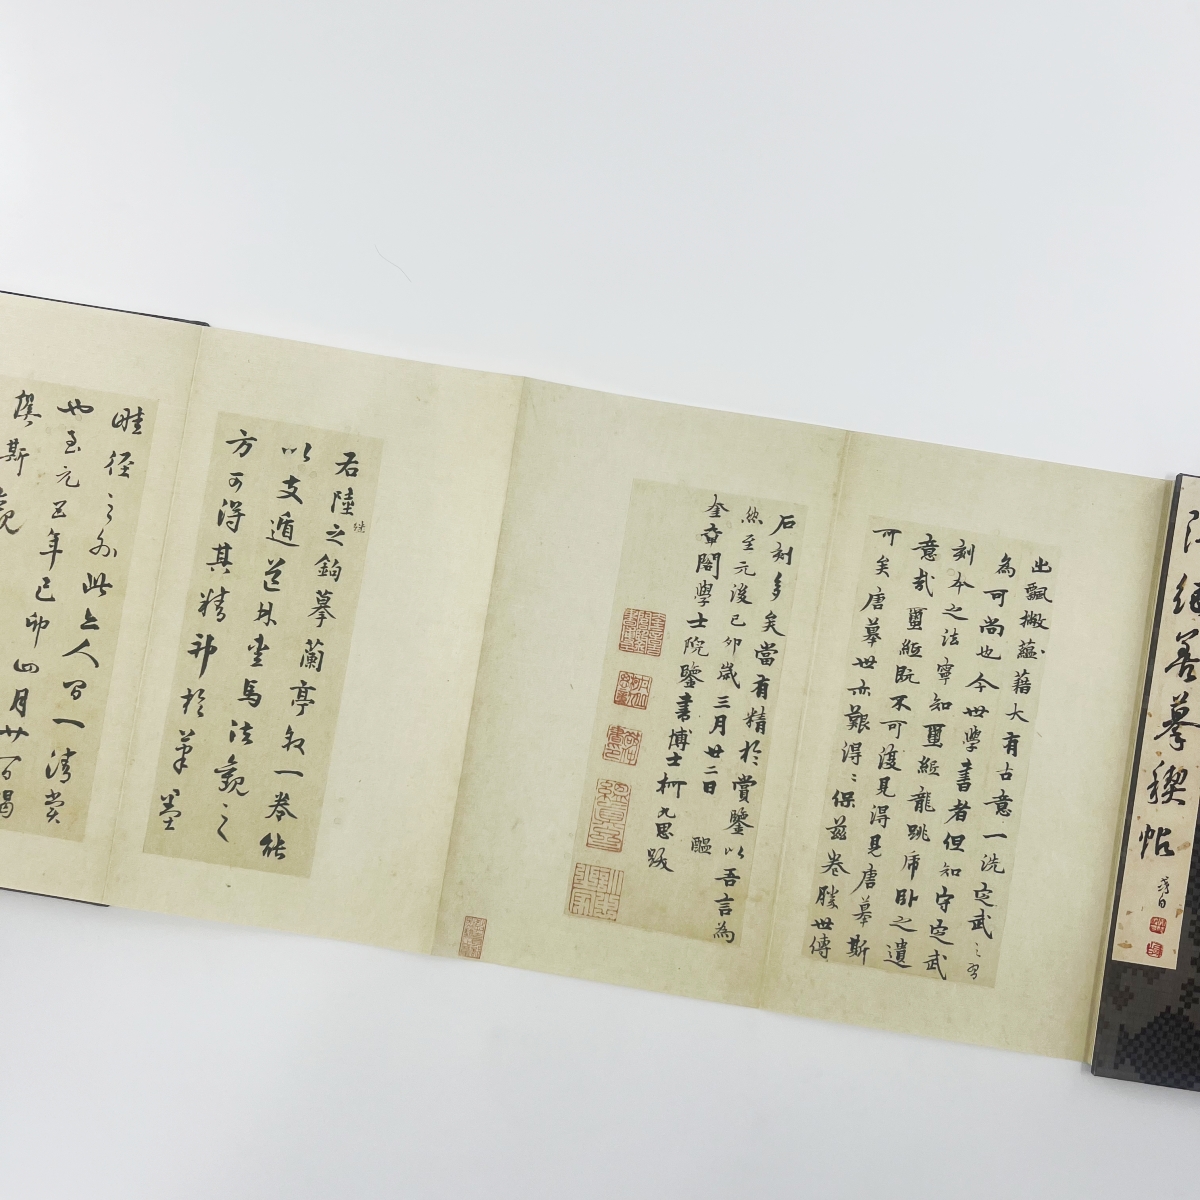 善摹禊帖
出飄撇蘊藉大有古意一洗定武之習
為可尚也今世學書者但知守定武
刻本之法寧知璽紙龍跳虎臥之遺
意哉璽紙既不可復見得見唐摹斯
可矣唐摹世亦艱得得保茲卷勝世傳
石刻多矣當有精於賞鑒以吾言為
然至元後己卯歲三月廿二日
奎章閣學士院鑒書博士柯九思跋
右陸繼之鉤摹蘭亭敘一卷能
以支遁道林愛馬法觀之
方可得其精神於筆墨
畦徑之外此亦人間一清賞
也至元五年己卯四月廿一日揭
傒斯觀